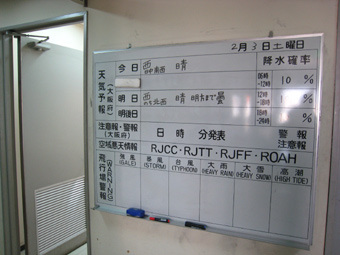 2月3日土曜日
天気予報
(大阪府)
今日
西
日中南西
晴
降水確率
06時
-12時
10 %
明日
西
のち北西
晴 明方まで曇
12時
-18時
10 %
明後日
18時
-24時
%
注意報・警報
(大阪府)
日 時 分発表
警報
注意報
空域悪天情報
RJCC・RJTT・RJFF・ROAH
飛行場警報
(WARNING)
強風
(GALE)
暴風
(STORM)
台風
(TYPHOON)
大雨
(HEAVY RAIN)
大雪
(HEAVY SNOW)
高潮
(HIGH TIDE)